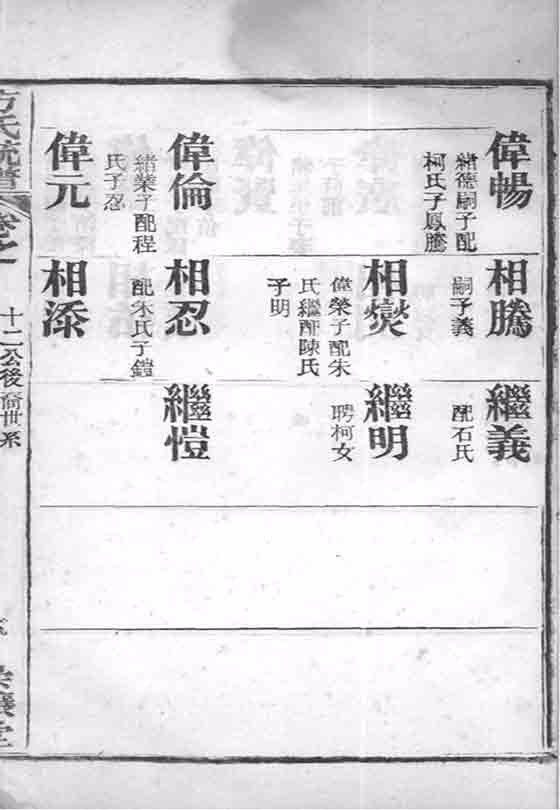 偉暢
緒德嗣子配
柯氏子鳳騰
偉倫
緒榮子配程
氏子忍
偉元
相騰
嗣子義
相爕
偉榮子配朱
氏繼配陳氏
子明
相忍
配朱氏子鎧
相添
繼義
配石氏
繼明
聘柯女
繼愷
方氏統譜
卷之
十二公後裔世系